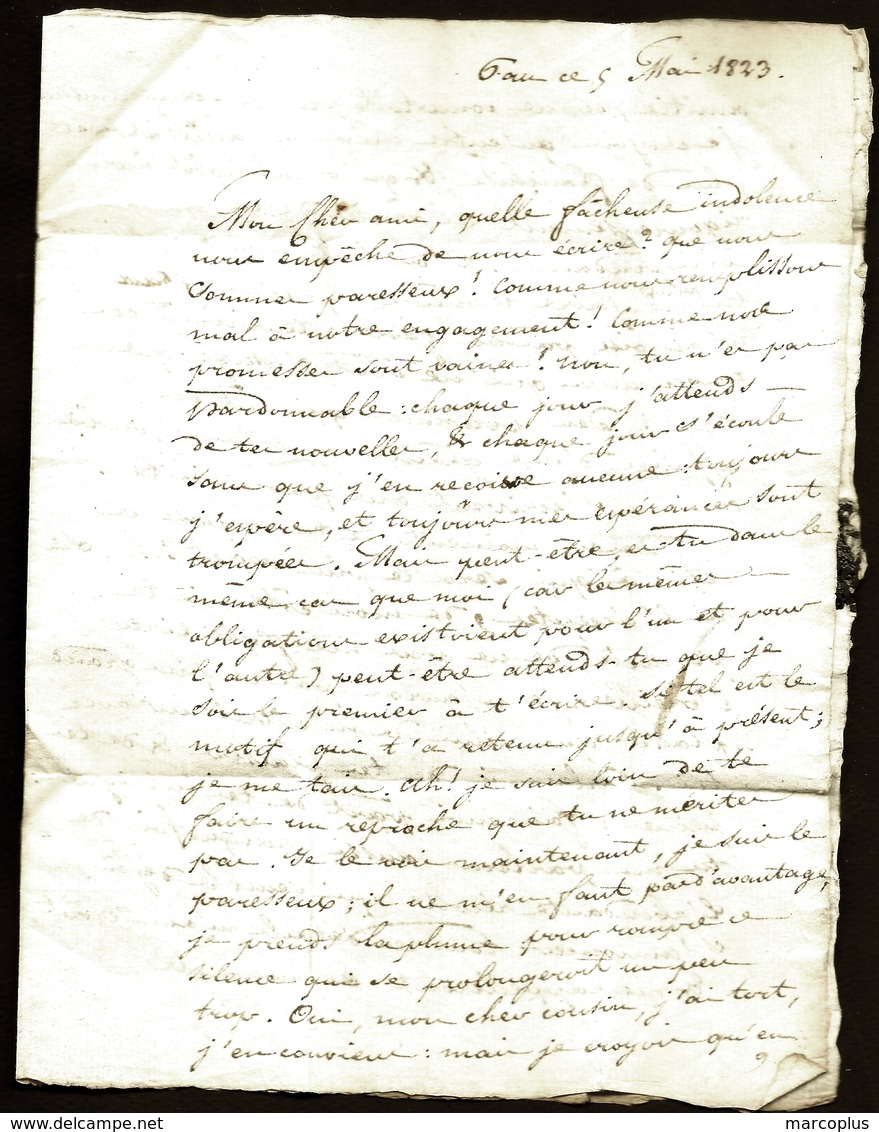 Pau ce 5 Mai 1823.
Mon Cher ami, quelle fâcheuse indolence
nous empêche de nous écrire? que nous
sommes paresseux! Comme nous remplissons
mal à notre engagement! Comme nos
promesses sont vaines! non, tu n'es pas
pardonnable: chaque jour j'attends
de tes nouvelles, & chaque jour s'écoule
sans que j'en recoive aucune: toujours
j'espère, et toujours mes espérances sont
trompées. Mais peut-être, es-tu dans le
même cas que moi, (car les mêmes
obligations existoient pour l'un et pour
l'autre) peut-être attends-tu que je
sois le premier à t'écrire. Si tel est le
motif qui t'a retenu jusqu'à présent;
je me tais. Ah! je suis loin de te
faire un reproche que tu ne mérites
pas. Je le vois maintenant, je suis le
paresseux; il ne m'en faut pas d'avantage,
je prends la plume pour rompre ce
silence qui se prolongeroit un peu
trop. Oui, mon cher cousin, j'ai tort,
j'en conviens: mais je croyois qu'en
marcoplus